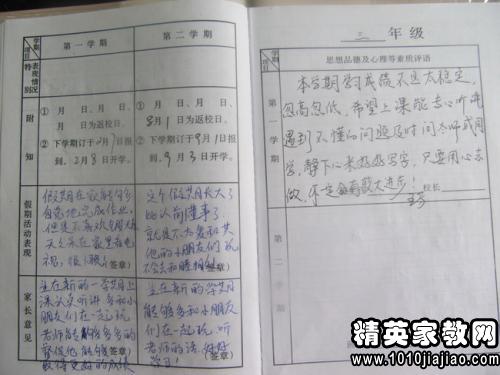 学期
项目
第一学期
第二学期
特别情况
表现
附
知
① 月 日、 月 日、
月 日为返校日。
② 下学期订于2月7日报
到。2月8日开学。
① 月 日、 月 日、
8月1日为返校日。
② 下学期订于9月1日报
到。9月3日开学。
假期活动表现
假期在家能够
自觉地完成作业，
但是不喜欢
天天呆在家里看电
视，很
(签章)
这个假期长大了
比以前懂事了，
就是不太爱和其
他的小朋友们玩
(签章)
家长意见
望在新的一学期上
课认真听讲多和小
朋友们在一起玩
老师能够多多的
督促他能够
(签章)
取得更好的成绩
望在新的学期
能够多和小朋友
们在一起玩，听
老师的话，好好
学习！
(签章)
三 年级
学期
项目
思想品德及心理等素质评语
第一学期
本学期学习成绩不是太稳定，
忽高忽低，希望上课能专心听讲
遇到不懂的问题及时问老师或同
学，静下心来认真写字，只要用心去
做，不定会有大进步！
校长
第二学期
精英家教网
www.1010jiajiao.com